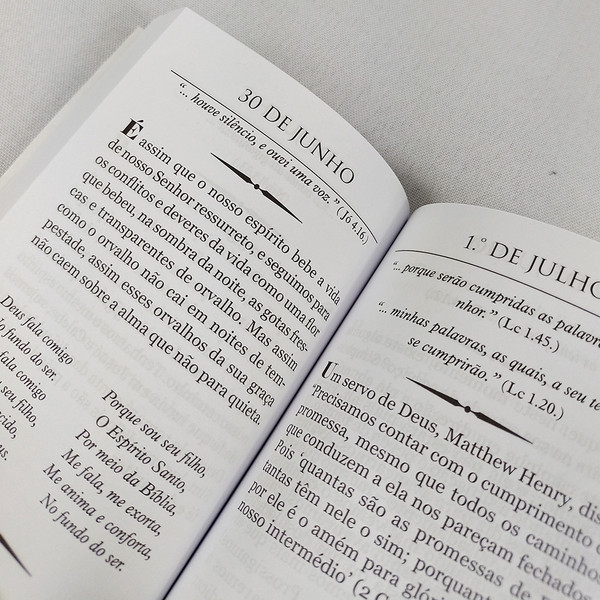 30 DE JUNHO
“... houve silêncio, e ouvi uma voz.” (Jó 4.16)
É assim que o nosso espírito bebe a vida
de nosso Senhor ressurreto, e seguimos para
os conflitos e deveres da vida como uma flor
que bebeu, na sombra da noite, as gotas fres-
cas e transparentes de orvalho. Mas assim
como o orvalho não cai em noites de tem-
pestade, assim esses orvalhos da sua graça
não caem sobre a alma que não para quieta.
Deus fala comigo
No fundo do ser.
fala comigo
seu filho,
Porque sou seu filho,
O Espírito Santo,
Por meio da Bíblia,
Me fala, me exorta,
Me anima e conforta,
No fundo do ser.
1.º DE JULHO
“... porque serão cumpridas as palavras
nhor.” (Lc 1.45.)
“... minhas palavras, as quais, a seu te
se cumprirão.” (Lc 1.20.)
Um servo de Deus, Matthew Henry, dis
‘Precisamos contar com o cumprimento
promessa, mesmo que todos os caminhos
que conduzem a ela nos pareçam fechados
Pois ‘quantas são as promessas de
tantas têm nele o sim; porquanto
por ele é o amém para glór
nosso intermédio’ (2 C